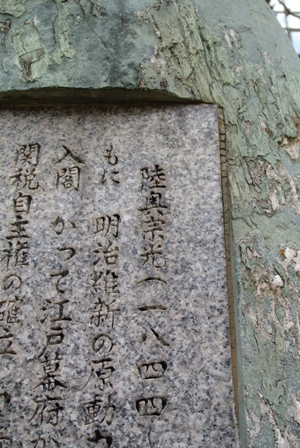 陸奥宗光(一八四四
もに 明治維新の原動力
入閣 かつて江戸幕府が
関税自主権の確立